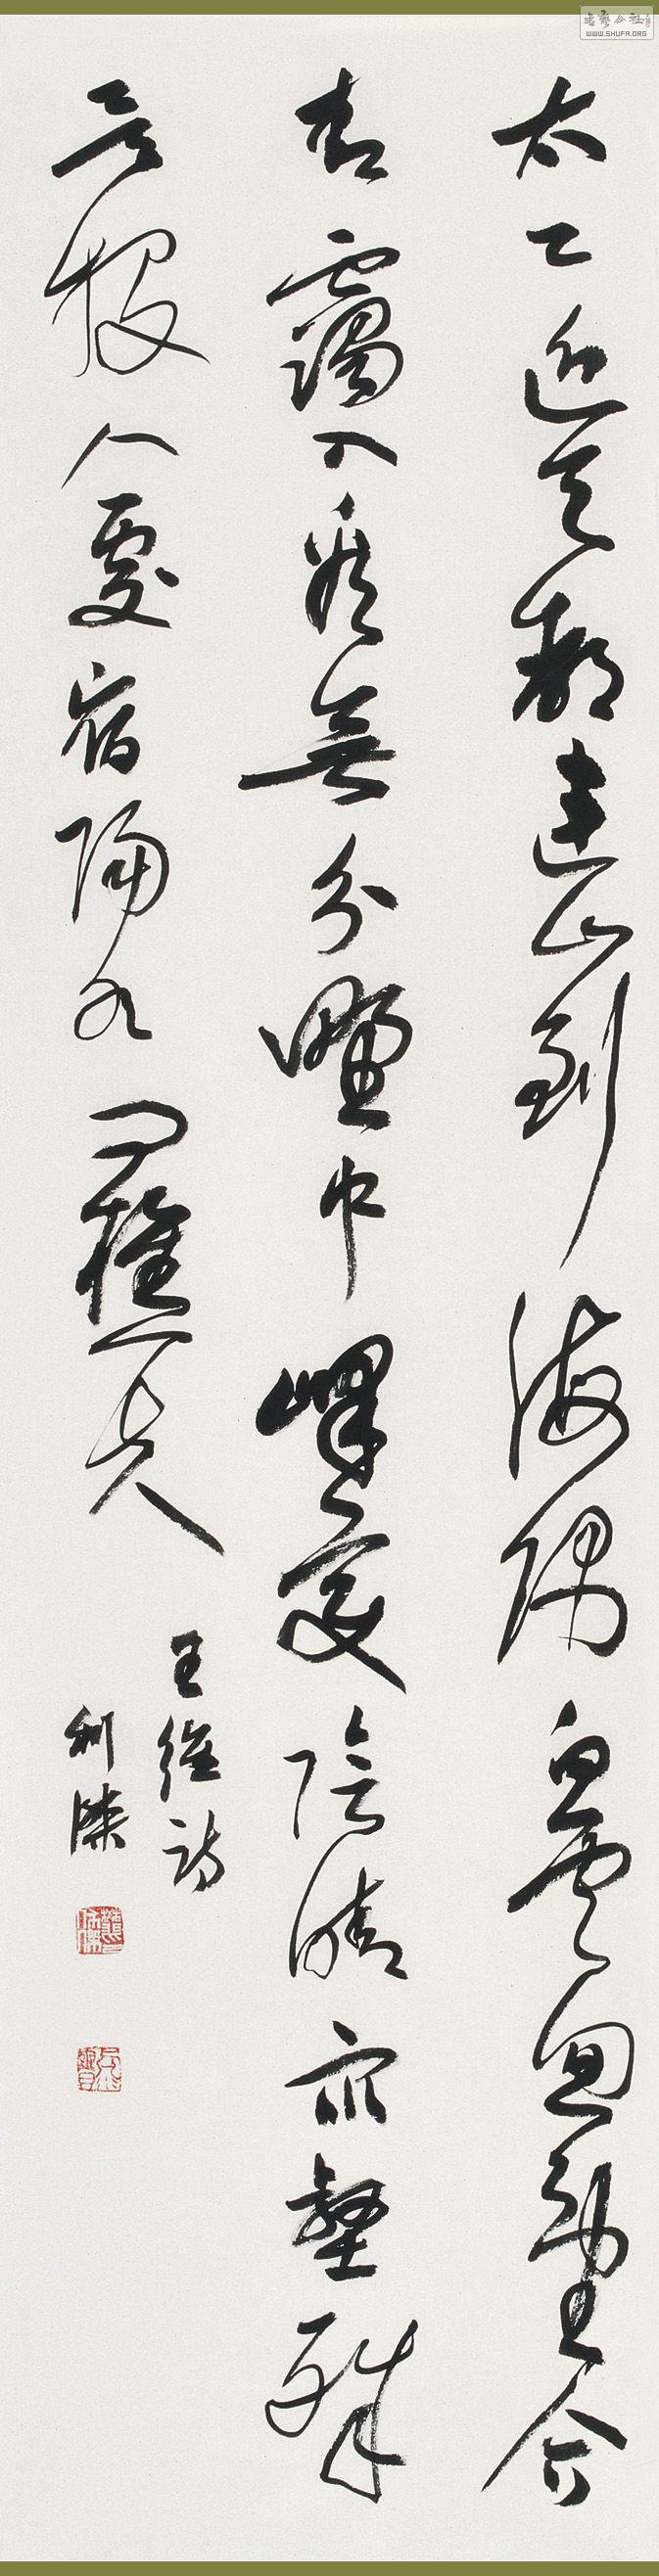 太乙近天都連山到海隅白雲回望合
青靄入看無分野中峰變陰晴眾壑殊
欲投人處宿隔水問樵夫
王維詩
書藝公社
WWW.SHUFA.ORG